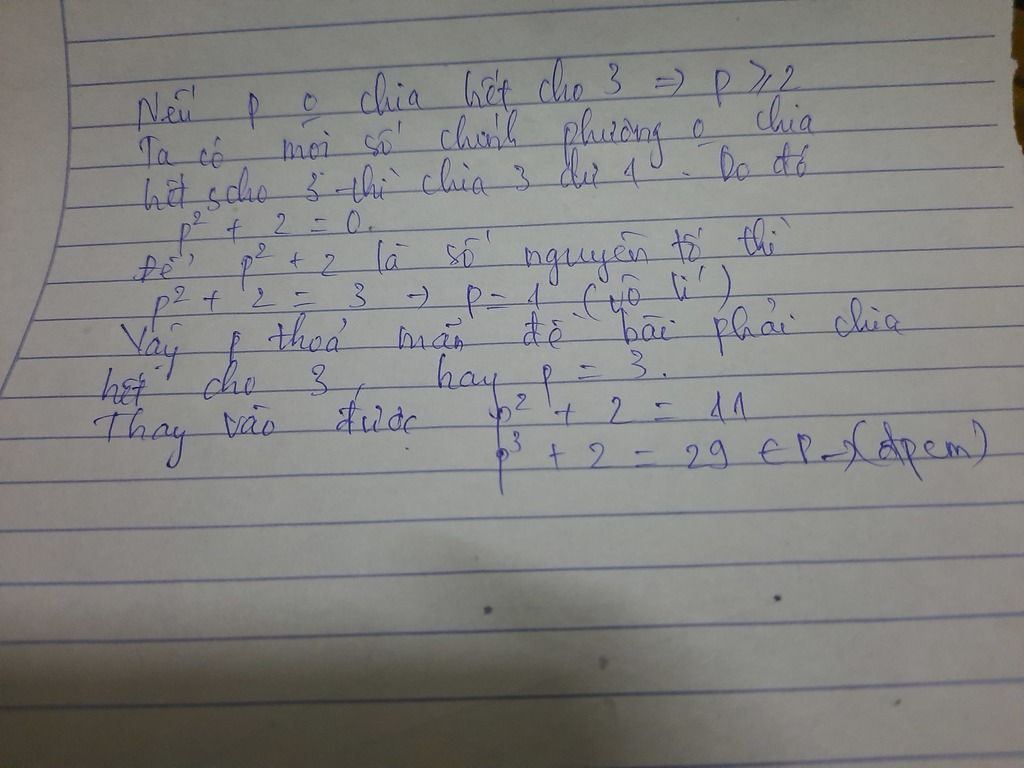 Nếu p o chia hết cho 3 => p ⩾ 2
Ta có mọi số chính phương o chia
hết cho 3 thì chia 3 dư 1. Do đó
p² + 2 = 0.
Để p² + 2 là số nguyên tố thì
p² + 2 = 3 → p = 1 (vô lí)
Vậy p thoả mãn đề bài phải chia
hết cho 3, hay p = 3.
Thay vào được p² + 2 = 11
p³ + 2 = 29 ∈ P → (đpcm)